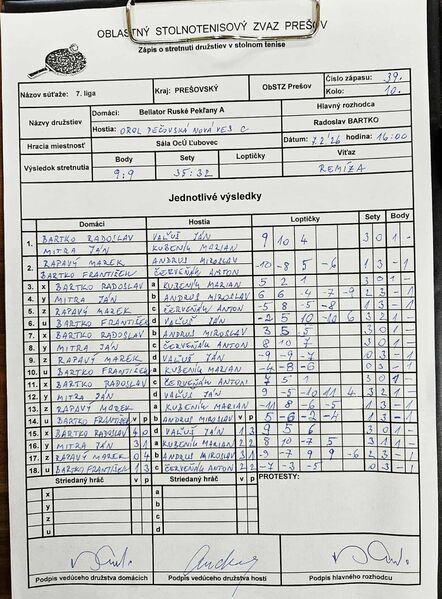 OBLASTNÝ STOLNOTENISOVÝ ZVAZ PREŠOV
Zápis o stretnutí družstiev v stolnom tenise
Názov súťaže: 7. liga Kraj: PREŠOVSKÝ ObSTZ Prešov Číslo zápasu: 39.
Kolo: 10.
Názvy družstiev Domáci: Bellator Ruské Pekľany A Hlavný rozhodca
Hostia: OROL PEČOVSKÁ NOVÁ VES C Radoslav BARTKO
Hracia miestnosť Sála OcÚ Ľubovec Dátum: 7.2.26 hodina: 16:00
Výsledok stretnutia Body Sety Loptičky Víťaz
9:9 35:32 REMÍZA
Jednotlivé výsledky
Domáci Hostia Loptičky Sety Body
1. BARTKO RADOSLAV VAĽUŠ JÁN 9 10 4 3 0 1 -
MITRA JÁN KUBENÍK MARIAN
2. RAPAVÝ MAREK ANDRUS MIROSLAV -10 -8 5 -6 1 3 - 1
BARTKO FRANTIŠEK ČERVEŇÁK ANTON
3. x BARTKO RADOSLAV a KUBENÍK MARIAN 5 2 1 3 0 1 -
4. y MITRA JÁN b ANDRUS MIROSLAV 6 6 -4 -7 -9 2 3 - 1
5. z RAPAVÝ MAREK c ČERVEŇÁK ANTON -5 8 -5 -8 1 3 - 1
6. u BARTKO FRANTIŠEK d VAĽUŠ JÁN -2 5 10 -10 6 3 2 1 -
7. x BARTKO RADOSLAV b ANDRUS MIROSLAV 3 5 5 3 0 1 -
8. y MITRA JÁN c ČERVEŇÁK ANTON 8 10 7 3 0 1 -
9. z RAPAVÝ MAREK d VAĽUŠ JÁN -9 -9 -7 0 3 - 1
10. u BARTKO FRANTIŠEK a KUBENÍK MARIAN -4 -8 -6 0 3 - 1
11. x BARTKO RADOSLAV c ČERVEŇÁK ANTON 7 5 1 3 0 1 -
12. y MITRA JÁN d VAĽUŠ JÁN 9 -5 -10 11 4 3 2 1 -
13. z RAPAVÝ MAREK a KUBENÍK MARIAN -11 8 -6 -5 1 3 - 1
14. u BARTKO FRANTIŠEK v p b ANDRUS MIROSLAV v p 5 -6 -2 -4 1 3 - 1
15. x BARTKO RADOSLAV 4 0 d VAĽUŠ JÁN 1 3 9 5 6 3 0 1 -
16. y MITRA JÁN 3 1 a KUBENÍK MARIAN 2 2 8 10 -7 5 3 1 1 -
17. z RAPAVÝ MAREK 0 4 b ANDRUS MIROSLAV 3 1 -7 9 9 -6 2 3 - 1
18. u BARTKO FRANTIŠEK 1 3 c ČERVEŇÁK ANTON 2 2 -7 -3 -5 0 3 - 1
Striedaný hráč v p Striedaný hráč v p PROTESTY:
x a
y b
z c
u d
Podpis vedúceho družstva domácich Podpis vedúceho družstva hostí Podpis hlavného rozhodcu